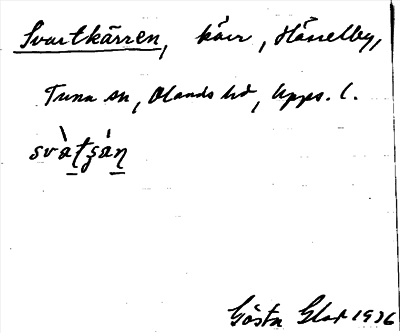 Svartkärren, kärr, Hässelby,
Tuna sn, Olands hd, Upps. l.
svàṯşáṉ
Gösta Glas 1936